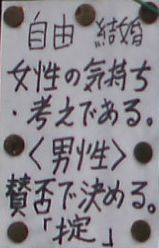 自由 結婚
女性の気持ち
・考えである。
〈男性〉
賛否で決める。
「掟」